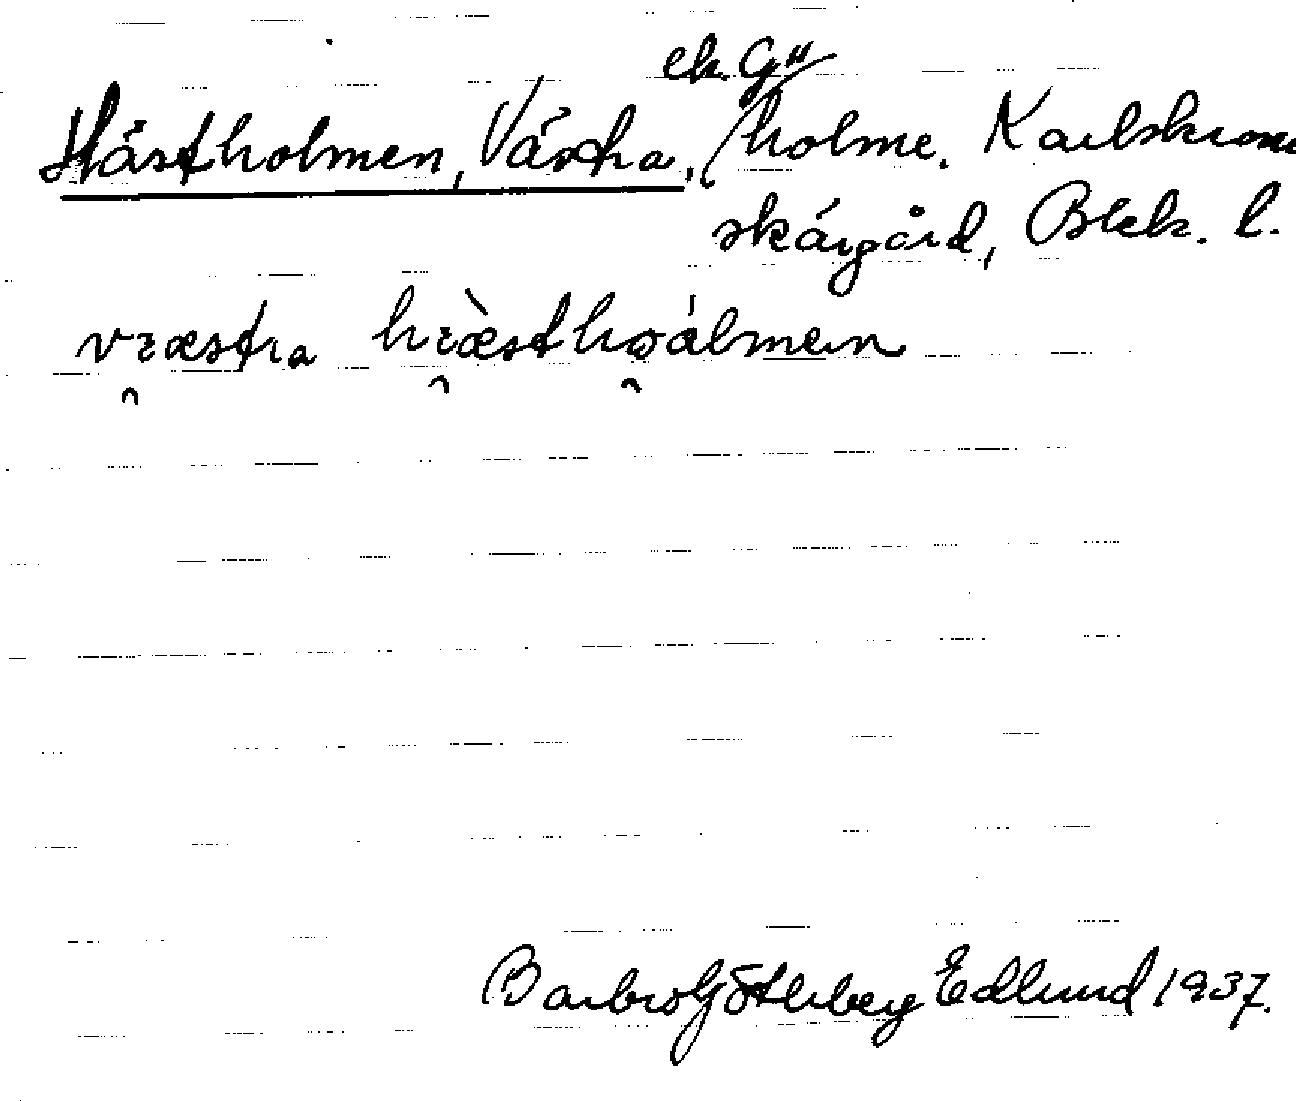 ek. G"
Hästholmen, Västra. /holme. Karlskrona
skärgård, Blek. l.
vræstra hræstholmen
Barbro Götlberg Edlund 1937.